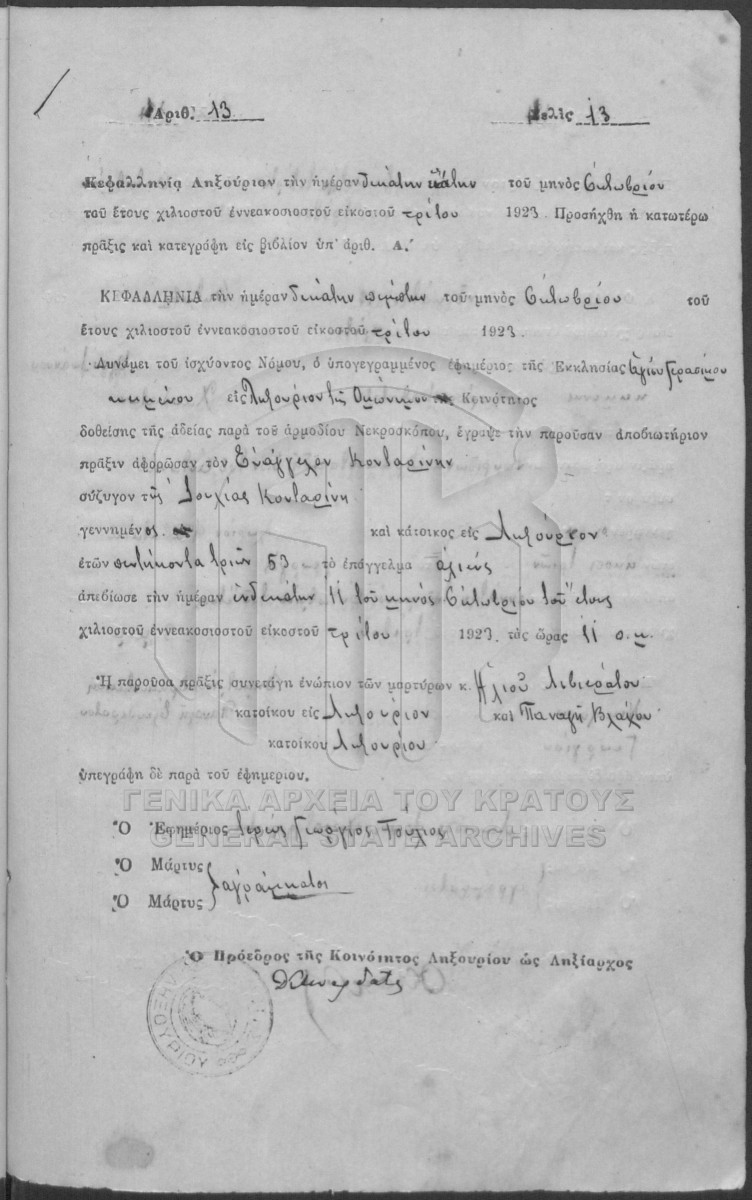 Αριθ. 13 Σελὶς 13
Κεφαλληνία Ληξούριον τὴν ἡμέραν δεκάτην ἕκτην τοῦ μηνὸς Ὀκτωβρίου
τοῦ ἔτους χιλιοστοῦ ἐννεακοσιοστοῦ εἰκοστοῦ τρίτου 1923. Προσήχθη ἡ κατωτέρω
πρᾶξις καὶ κατεγράφη εἰς βιβλίον ὑπ' ἀριθ. Α.'
ΚΕΦΑΛΛΗΝΙΑ τὴν ἡμέραν δεκάτην πέμπτην τοῦ μηνὸς Ὀκτωβρίου τοῦ
ἔτους χιλιοστοῦ ἐννεακοσιοστοῦ εἰκοστοῦ τρίτου 1923.
Δυνάμει τοῦ ἰσχύοντος Νόμου, ὁ ὑπογεγραμμένος ἐφημέριος τῆς Ἐκκλησίας Ἁγίου Γερασίμου
κειμένου εἰς Ληξούριον τῆς Ὁμωνύμου Κοινότητος
δοθείσης τῆς ἀδείας παρὰ τοῦ ἁρμοδίου Νεκροσκόπου, ἔγραψε τὴν παροῦσαν ἀποβιωτήριον
πρᾶξιν ἀφορῶσαν τὸν Εὐάγγελον Κονταρίνην
σύζυγον τῆς Λουκίας Κονταρίνη
γεννημένος. καὶ κάτοικος εἰς Ληξούριον
ἐτῶν πεντήκοντα τριῶν 53 τὸ ἐπάγγελμα ἁλιεύς
ἀπεβίωσε τὴν ἡμέραν ἑνδεκάτην 11 τοῦ μηνὸς Ὀκτωβρίου τοῦ ἔτους
χιλιοστοῦ ἐννεακοσιοστοῦ εἰκοστοῦ τρίτου 1923 τὰς ὥρας 11 π.μ.
Ἡ παροῦσα πρᾶξις συνετάγη ἐνώπιον τῶν μαρτύρων κ. Ἠλιοῦ Λιβιεράτου
κατοίκου εἰς Ληξούριον καὶ Παναγῆ Βλάχου
κατοίκου Ληξουρίου
ὑπεγράφη δὲ παρὰ τοῦ ἐφημερίου.
ΓΕΝΙΚΑ ΑΡΧΕΙΑ ΤΟΥ ΚΡΑΤΟΥΣ
Ὁ Ἐφημέριος Ἱερεὺς Γεώργιος
GENERAL STATE ARCHIVES
Ὁ Μάρτυς
ἀγράμματοι
Ὁ Μάρτυς
Ὁ Πρόεδρος τῆς Κοινότητος Ληξουρίου ὡς Ληξίαρχος